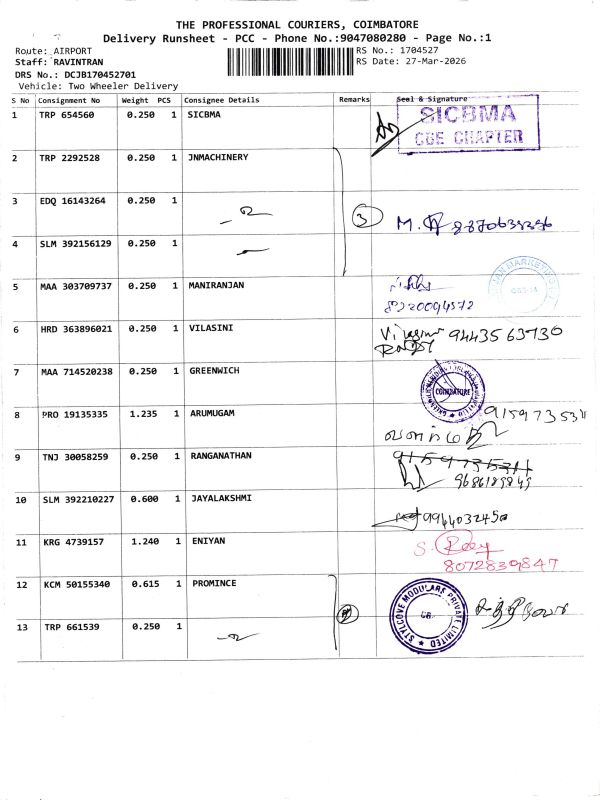 THE PROFESSIONAL COURIERS, COIMBATORE
Delivery Runsheet - PCC - Phone No.:9047080280 - Page No.:1
Route: AIRPORT
RS No.: 1704527
Staff: RAVINTRAN
RS Date: 27-Mar-2026
DRS No.: DCJB170452701
Vehicle: Two Wheeler Delivery
S No Consignment No Weight PCS Consignee Details Remarks Seal & Signature
1 TRP 654560 0.250 1 SICBMA
SICBMA
CBE CHAPTER
2 TRP 2292528 0.250 1 JNMACHINERY
3 EDQ 16143264 0.250 1
3
4 SLM 392156129 0.250 1
5 MAA 303709737 0.250 1 MANIRANJAN
8220094572
6 HRD 363896021 0.250 1 VILASINI
Vilasini 9443563730
7 MAA 714520238 0.250 1 GREENWICH
COIMBATORE
8 PRO 19135335 1.235 1 ARUMUGAM
9 TNJ 30058259 0.250 1 RANGANATHAN
10 SLM 392210227 0.600 1 JAYALAKSHMI
11 KRG 4739157 1.240 1 ENIYAN
8072839847
12 KCM 50155340 0.615 1 PROMINCE
STYLCOVE MODULARS PRIVATE LIMITED
13 TRP 661539 0.250 1